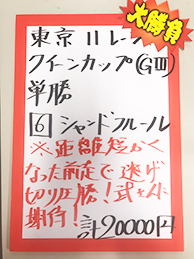 大勝負
東京11レース
クイーンカップ(GⅢ)
単勝
6 シャンドフルール
※距離短かく
なった前走で逃げ
切り圧勝!武さんに
期待!
計20000円